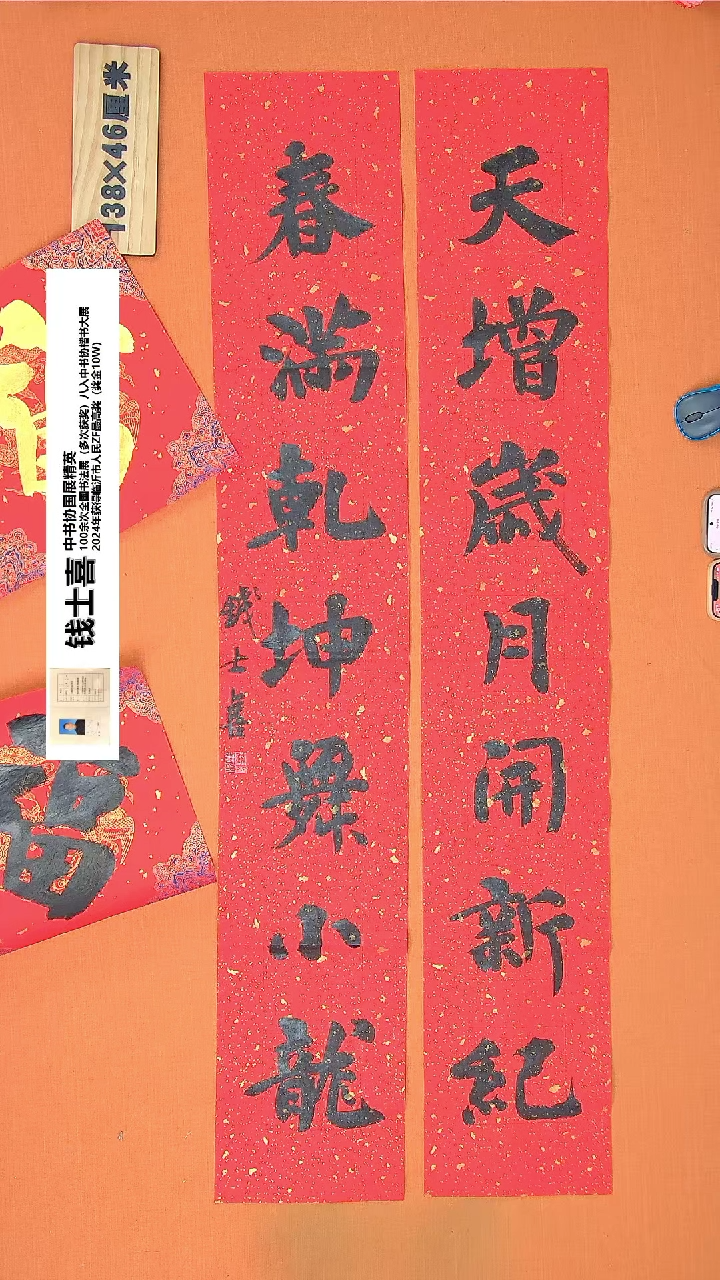 天增歲月開新紀
春滿乾坤舞小龍
钱士喜
138×46厘米
钱士喜
中书协国展精英
100余次全国书法展（多次获奖）八入中书协楷书大展
2024年获得临沂市人民ZF最高奖（奖金10W）